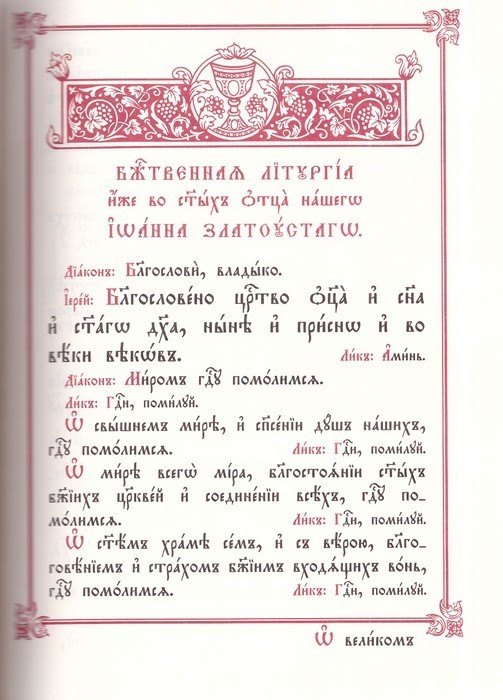 Бж҃твеннаѧ лїтꙋргі́а
и҆́же во ст҃ы́хъ ѻ҆тца̀ на́шегѡ
І҆ѡа́нна златоꙋ́стагѡ.
Дїа́конъ: Бл҃гословѝ, влады́ко.
І҆ере́й: Бл҃гослове́но црⷭ҇тво ѻ҆ц҃а̀ и҆ сн҃а
и҆ ст҃а́гѡ дх҃а, ны́нѣ и҆ при́снѡ и҆ во
вѣ́ки вѣкѡ́въ. Ли́къ: А҆ми́нь.
Дїа́конъ: Ми́ромъ гдⷭ҇ꙋ помо́лимсѧ.
Ли́къ: Гдⷭ҇и, поми́лꙋй.
Ѽ свы́шнемъ ми́рѣ, и҆ сп҃се́нїи дꙋ́шъ на́шихъ,
гдⷭ҇ꙋ помо́лимсѧ. Ли́къ: Гдⷭ҇и, поми́лꙋй.
Ѽ ми́рѣ всегѡ̀ мі́ра, бл҃гостоѧ́нїи ст҃ы́хъ
бж҃їихъ цр҃кве́й и҆ соедине́нїи всѣ́хъ, гдⷭ҇ꙋ по-
мо́лимсѧ. Ли́къ: Гдⷭ҇и, поми́лꙋй.
Ѽ ст҃ѣ́мъ хра́мѣ се́мъ, и҆ съ вѣ́рою, бл҃го-
говѣ́нїемъ и҆ стра́хомъ бж҃їимъ входѧ́щихъ во́нь,
гдⷭ҇ꙋ помо́лимсѧ. Ли́къ: Гдⷭ҇и, поми́лꙋй.
Ѽ вели́комъ